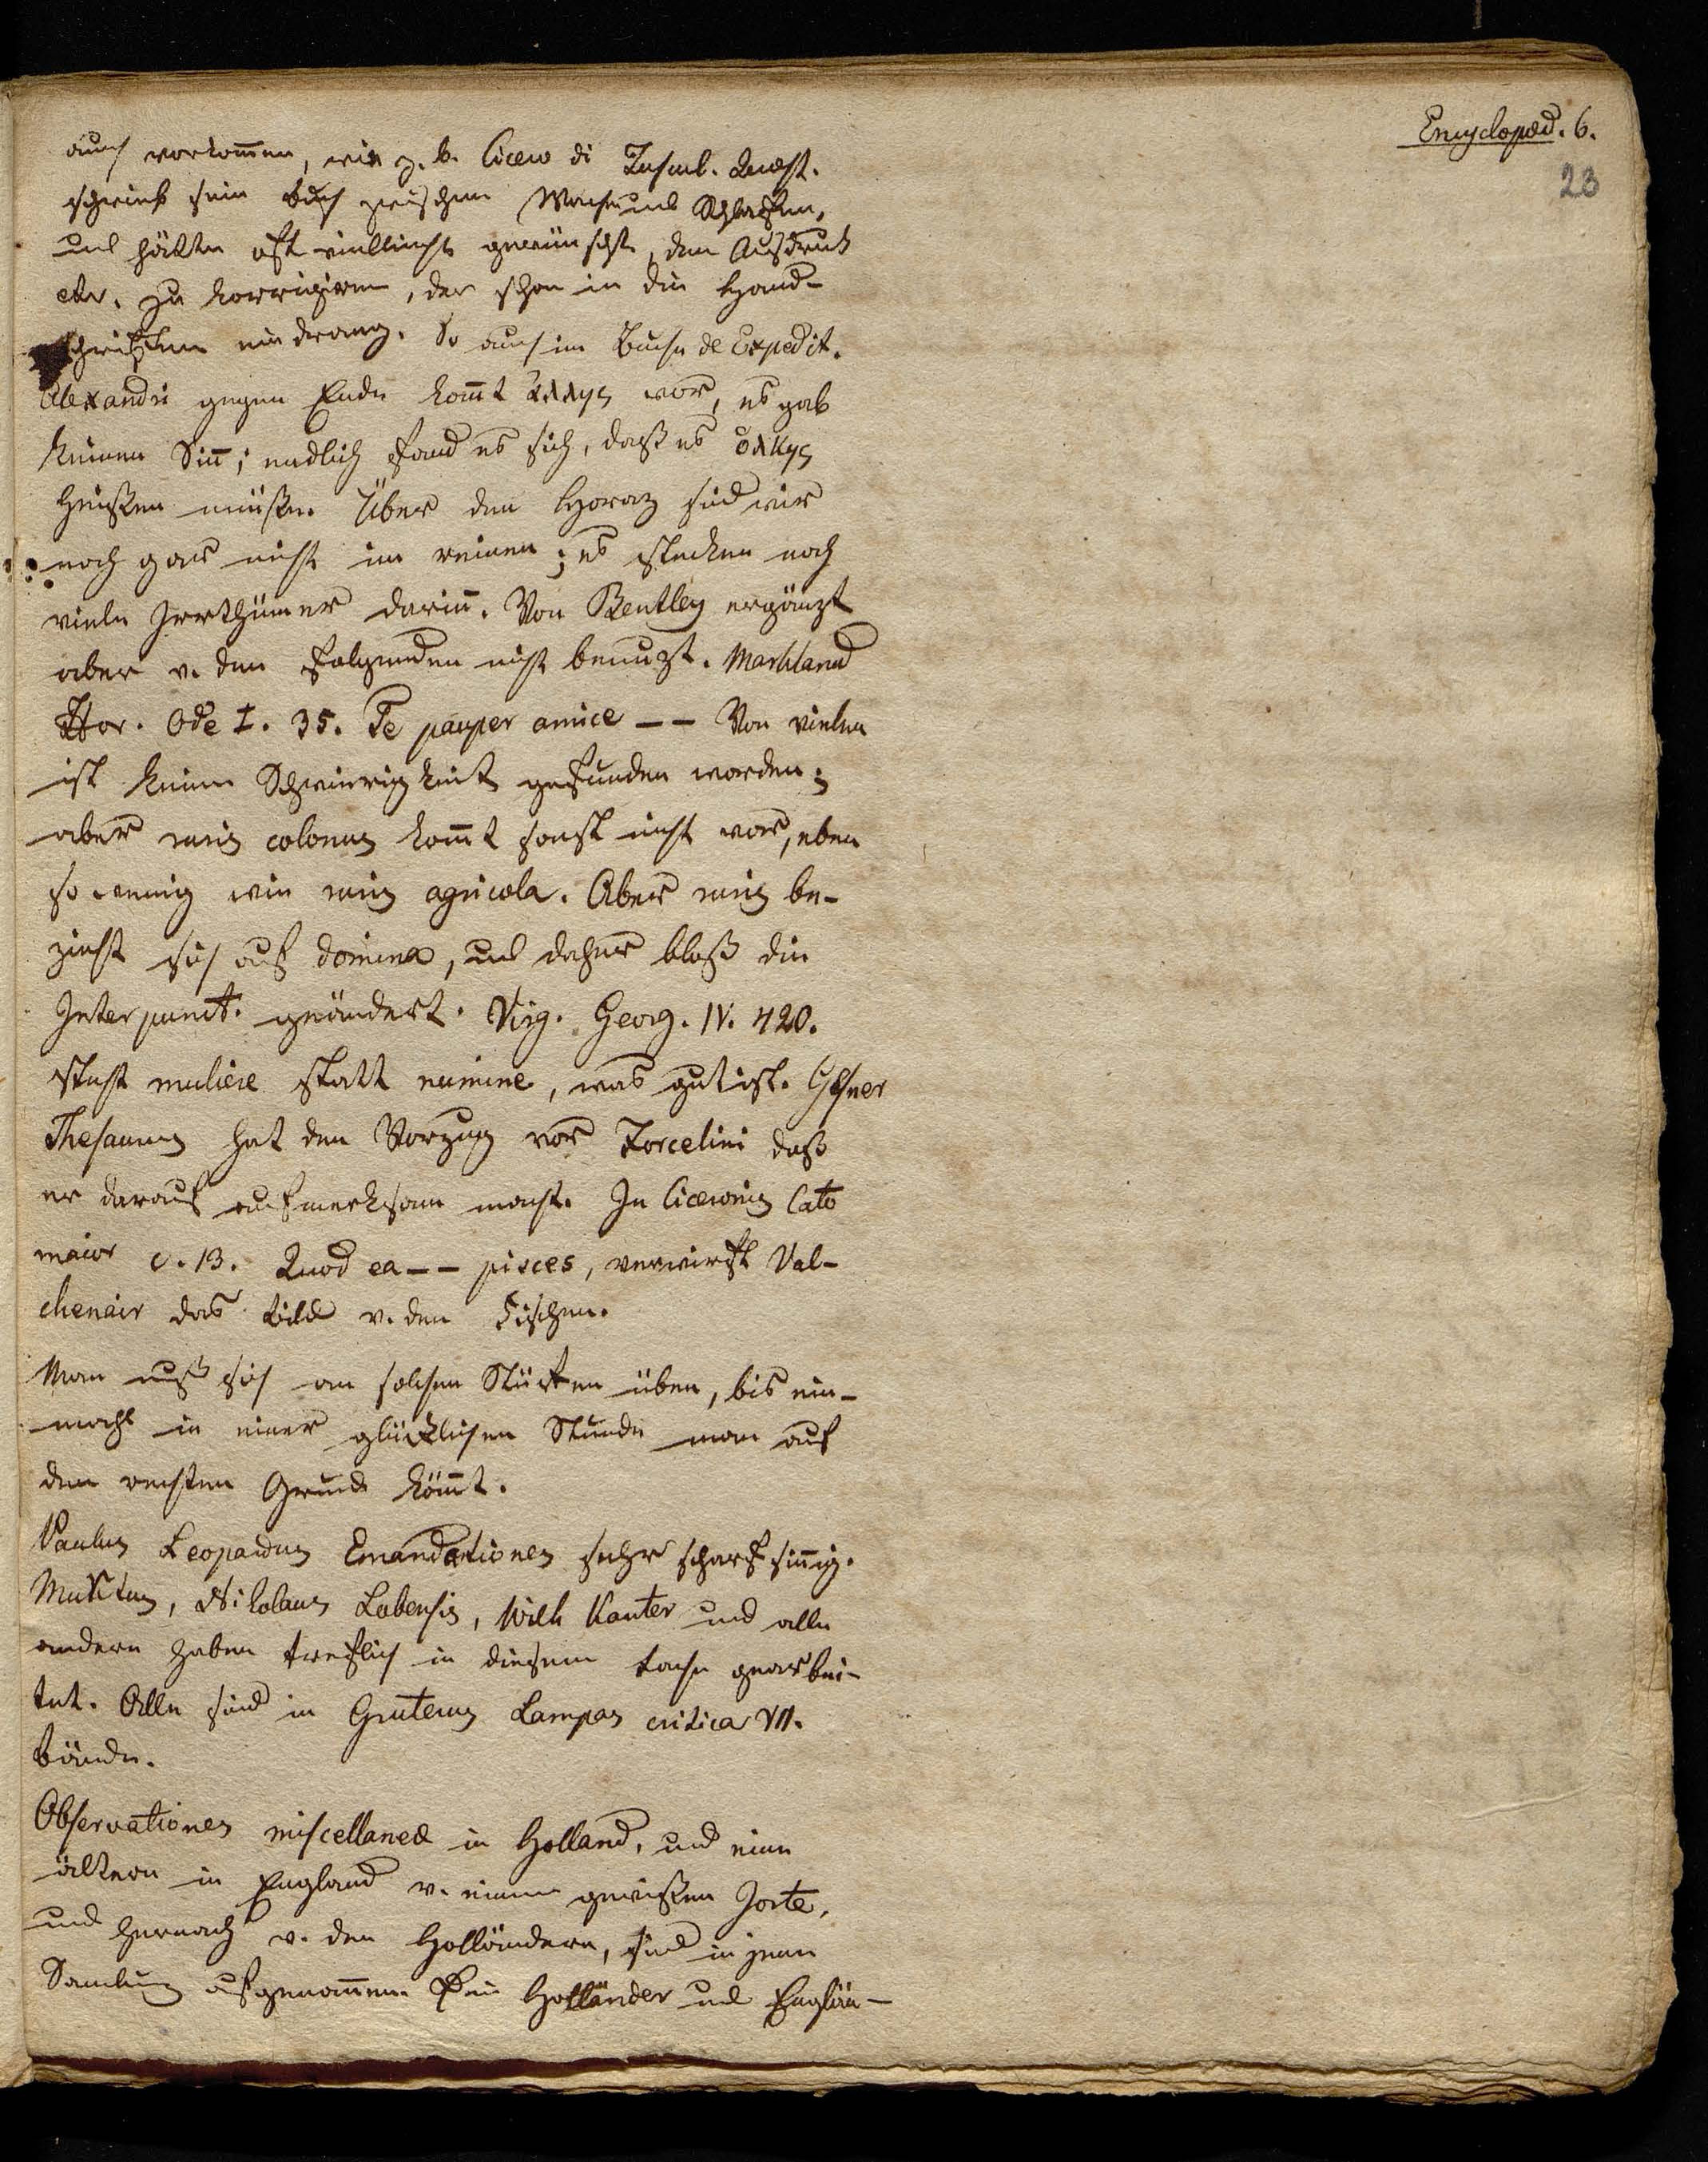 Encyclopæd. 6.
23
auch vorkom̄en, wie z. b. Cicero di Tuscul. Quæst.
schrieb sein buch zwischen Wachen und Schlafen,
und hätte oft vielleicht gewünscht, den Ausdruk
etc. zu korrigiren, der schon in die Hand-
schriften eindrang. So auch im Buche de Expedit.
Alexandri gegen Ende kom̄t ἄλλης vor, es gab
keinen Sin̄; endlich fand es sich, daß es ὁλκης
heißen müße. Über den Horaz sind wir
noch gar nicht im reinen; es stecken noch
viele Irrthümer darin̄. Von Bentley ergänzt
aber v. den folgenden nicht benuzt. Markland
Hor. Ode I. 35. Te pauper amice -- Von vielen
ist keine Schwierigkeit gefunden worden;
aber ruris colonus kom̄t sonst nicht vor, eben
so wenig wie ruris agricola. Aber ruris be-
zieht sich auf domina, und daher bloß die
Interpunct. geändert. Virg. Georg. IV. 420.
steht muliere statt numine, was gut ist. Gesner
Thesaurus hat den Vorzug vor Forcelini daß
er darauf aufmerksam macht. In Ciceronis Cato
maior c. 13. Quod ea -- pisces, verwirft Val-
chenair das bild v. den Fischen.
Man muß sich an solchen Stücken üben, bis ein-
mahl in einer glücklichen Stunde man auf
den rechten Grund köm̄t.
Paulus Leopardus Emandationes sehr scharfsin̄ig.
Muretus, Nikolaus Lobensis, Wilh Kanter und alle
andern haben treflich in diesem fache gearbei-
tet. Alle sind in Gruterus Lampas critica VII.
bände.
Observationes miscellaneæ in Holland, und eine
ältern in England v. einem gewißen Jorte,
und hernach v. den Holländern, sind in jene
Samlung aufgenom̄en. Die Holländer und Englän-